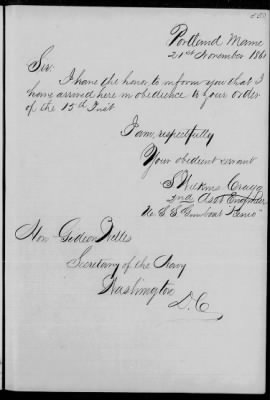 Portland Maine
21st November 1861
Sir:
I have the honor to inform you that I
have arrived here in obedience to your order
of the 15th Inst
I am, respectfully
Your obedient servant
S Wilkins Cragg
2nd Asst Engineer
U. S. S Gunboat "Kineo"
Hon Gideon Welles
Secretary of the Navy
Washington
D. C